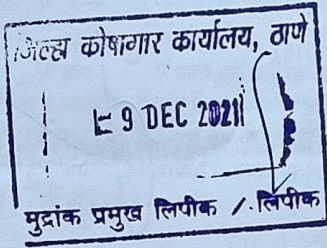 जिल्हा कोषागार कार्यालय, ठाणे
9 DEC 2021
मुद्रांक प्रमुख लिपीक / लिपीक